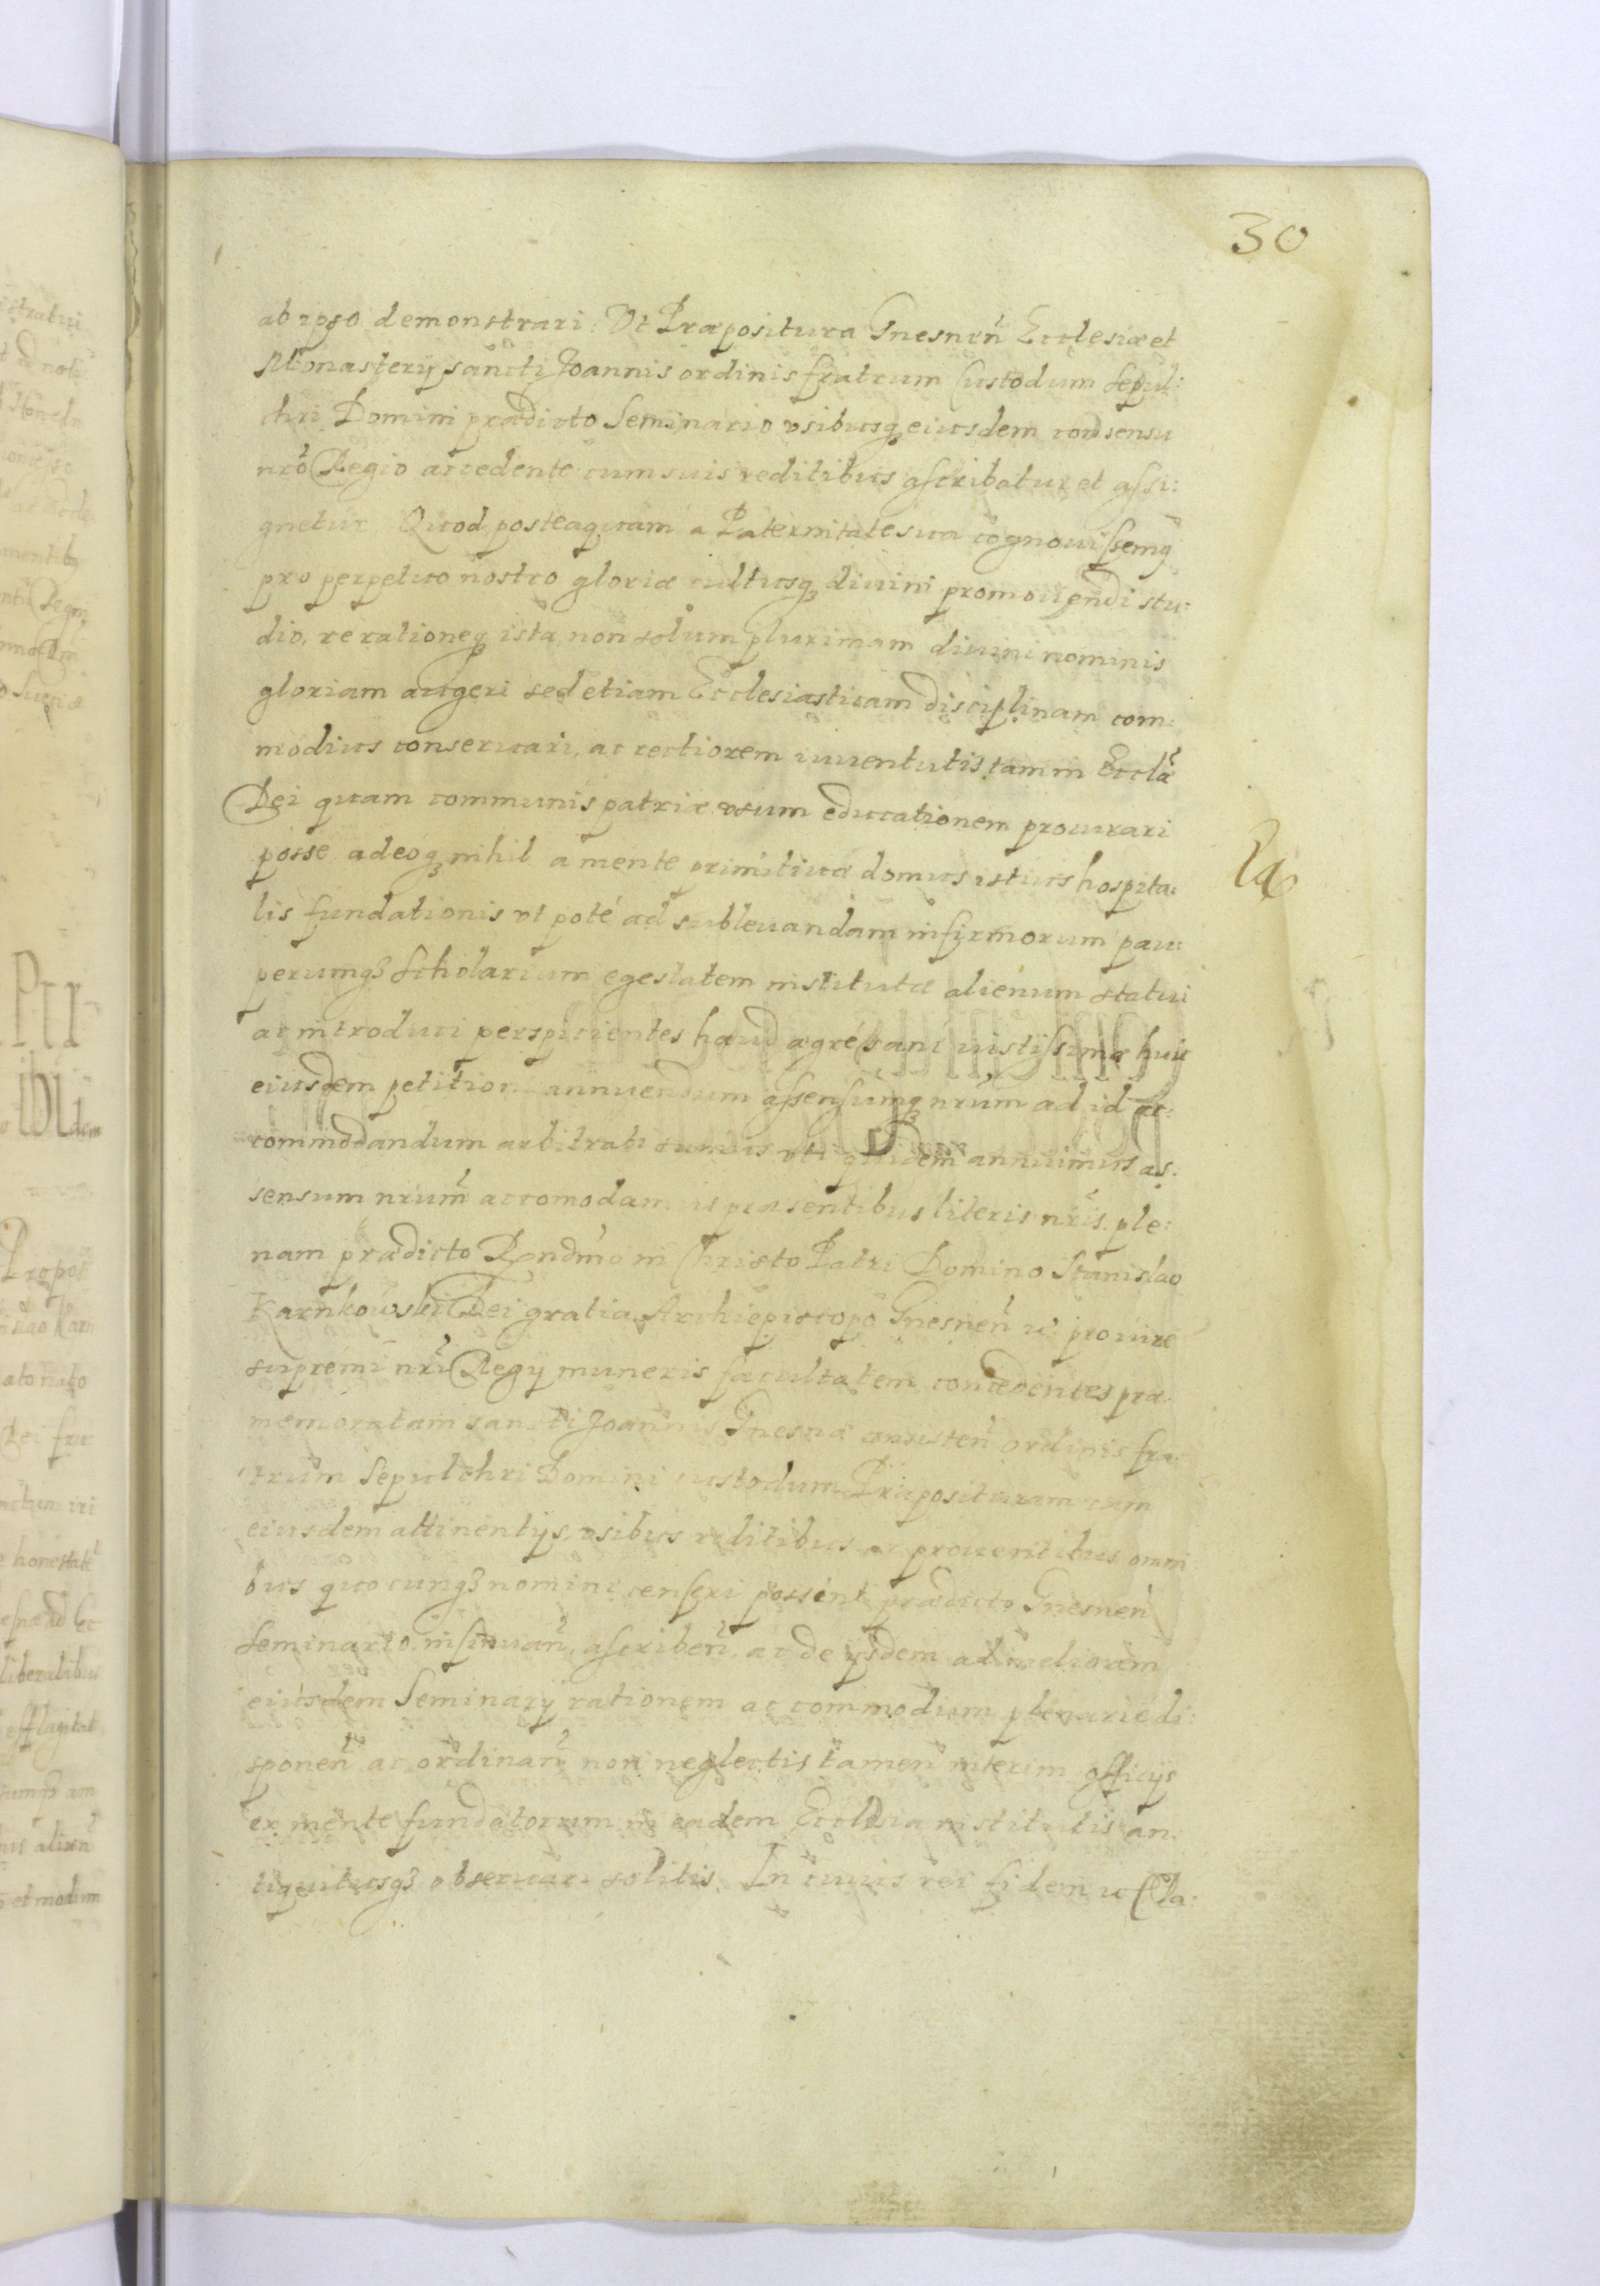 30
ab ipso demonstrari: Vt Præpositura Gnesneñ Ecclesiæ et
Monasterij sancti Joannis ordinis fratrum Custodum Sepul:
chri Domini prædicto Seminario vsibusq; eiusdem consensu
nrô Regio accedente cum suis reditibus ascribatur et assi:
gnetur. Quod posteaquam a Paternitate sua cognouissemq
pro perpetuo nostro gloriæ cultusq; diuini promouendi stu:
dio, re rationeq; ista non solum plurimam diuini nominis
gloriam augeri sed etiam Ecclesiasticam disciplinam com:
modius conseruari, ac rectiorem iuuentutis tam in Ecclã
Dei quam communis patriæ vsum educationem procurari
posse adeoq; nihil a mente primitiuæ domus istius hospita:
lis fundationis vt poté ad subleuandam infirmorum pau:
perumq; Scholarium egestatem institutæ alienum statui
ac introduci perspicientes haud ægré sané iustissimæ huic
eiusdem petitioni annuendum assensumq; nrũm ad id ac:
commodandum arbitrati sumus vti quidem annuimus as:
sensum nrũm accomodamus præsentibus literis nrîs. ple:
nam prædicto Rndmo in Christo Patri Domino Stanislao
Karnkowski Dei gratia Archiepiscopo Gnesneñ vt
supremi nrî Regij muneris facultatem concedentes præ:
memoratam sancti Joannis Gnesnæ existeñ ordinis fra:
trum Sepulchri Domini custodum Præposituram cum
eiusdem attinentijs, vsibus reditibus ac prouentibus omni
bus quocunq; nomine censeri possent prædicto Gnesneñ
Seminario insinuañ, ascribeñ, ac de ijsdem ad meliorem
eiusdem Seminarij rationem ac commodum plenarié di:
sponeñ ac ordinañ non neglectis tamen interim officijs
ex mente fundatorum in eadem Ecclesia institutis an:
tiquitusq; obseruari solitis. In cuius rei fidem